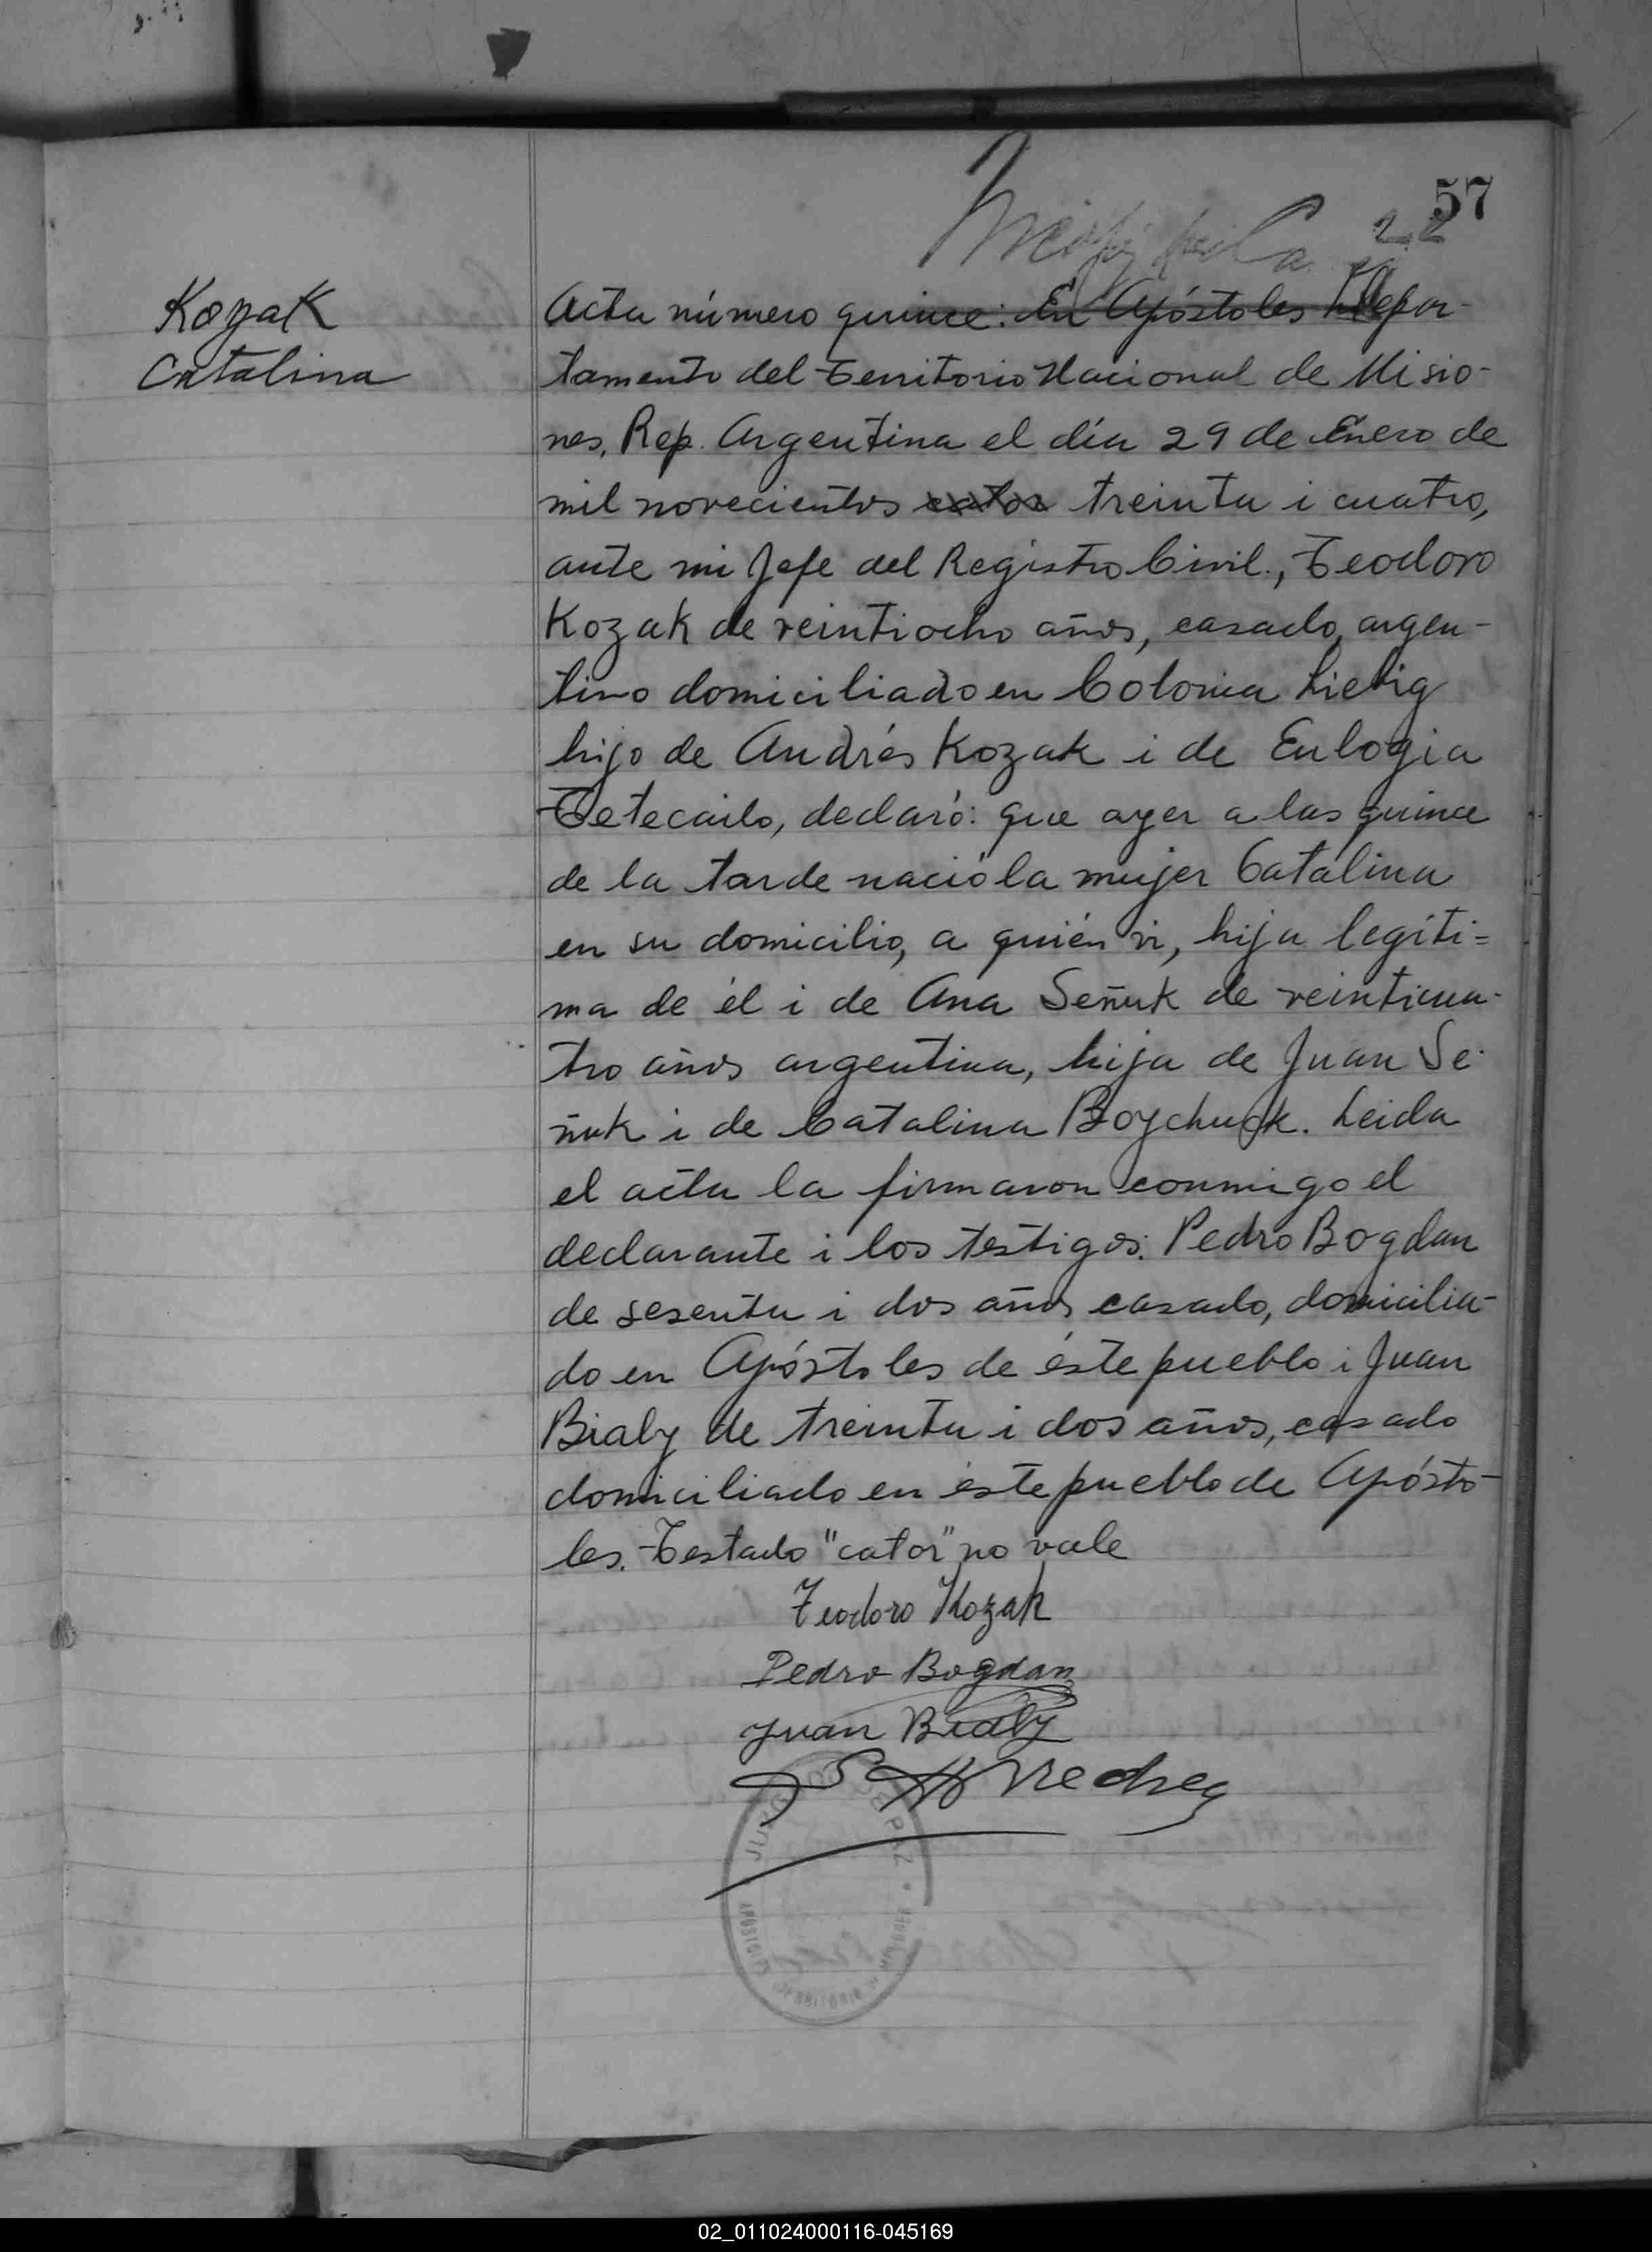 57
22
Kozak
Catalina
Acta número quince: En Apóstoles Depar-
tamento del Territorio Nacional de Misio-
nes, Rep. Argentina el día 29 de Enero de
mil novecientos cator treinta i cuatro,
ante mi Jefe del Registro Civil, Teodoro
Kozak de veintiocho años, casado, argen-
tino domiciliado en Colonia Liebig
hijo de Andrés Kozak i de Eulogia
declaró: que ayer a las quince
de la tarde nació la mujer Catalina
en su domicilio, a quién vi, hija legíti=
ma de él i de Ana Señuk de veinticua-
tro años argentina, hija de Juan Se-
ñuk i de Catalina Boychuck. Leida
el acta la firmaron conmigo el
declarante i los testigos: Pedro Bogdan
de sesenta i dos años casado, domicilia-
do en Apóstoles de éste pueblo i Juan
Bialy de treinta i dos años, casado
domiciliado en éste pueblo de Apósto-
les. Testado "cator" no vale
Teodoro Kozak
Pedro Bogdan
Juan Bialy
JUZGADO DE PAZ
APOSTOLES TERRITORIO DE MISIONES
02_011024000116-045169